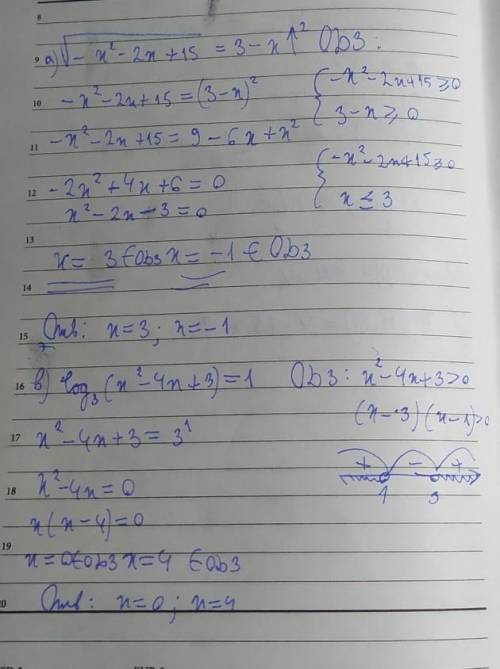 8
9 а) √(-x²-2x+15) = 3-x ↑² ОДЗ:
10 -x²-2x+15=(3-x)² { -x²-2x+15≥0
3-x≥0
11 -x²-2x+15=9-6x+x²
12 -2x²+4x+6=0 { -x²-2x+15≥0
x²-2x-3=0 x≤3
13
x= 3 ∈ ОДЗ x= -1 ∈ ОДЗ
14
15 Отв: x=3; x=-1
16 в) log₃(x²-4x+3)=1 ОДЗ: x²-4x+3>0
(x-3)(x-1)>0
17 x²-4x+3=3¹
+ - +
1 3
18 x²-4x=0
x(x-4)=0
19
x=0∈ОДЗ x=4 ∈ОДЗ
20 Отв: x=0; x=4